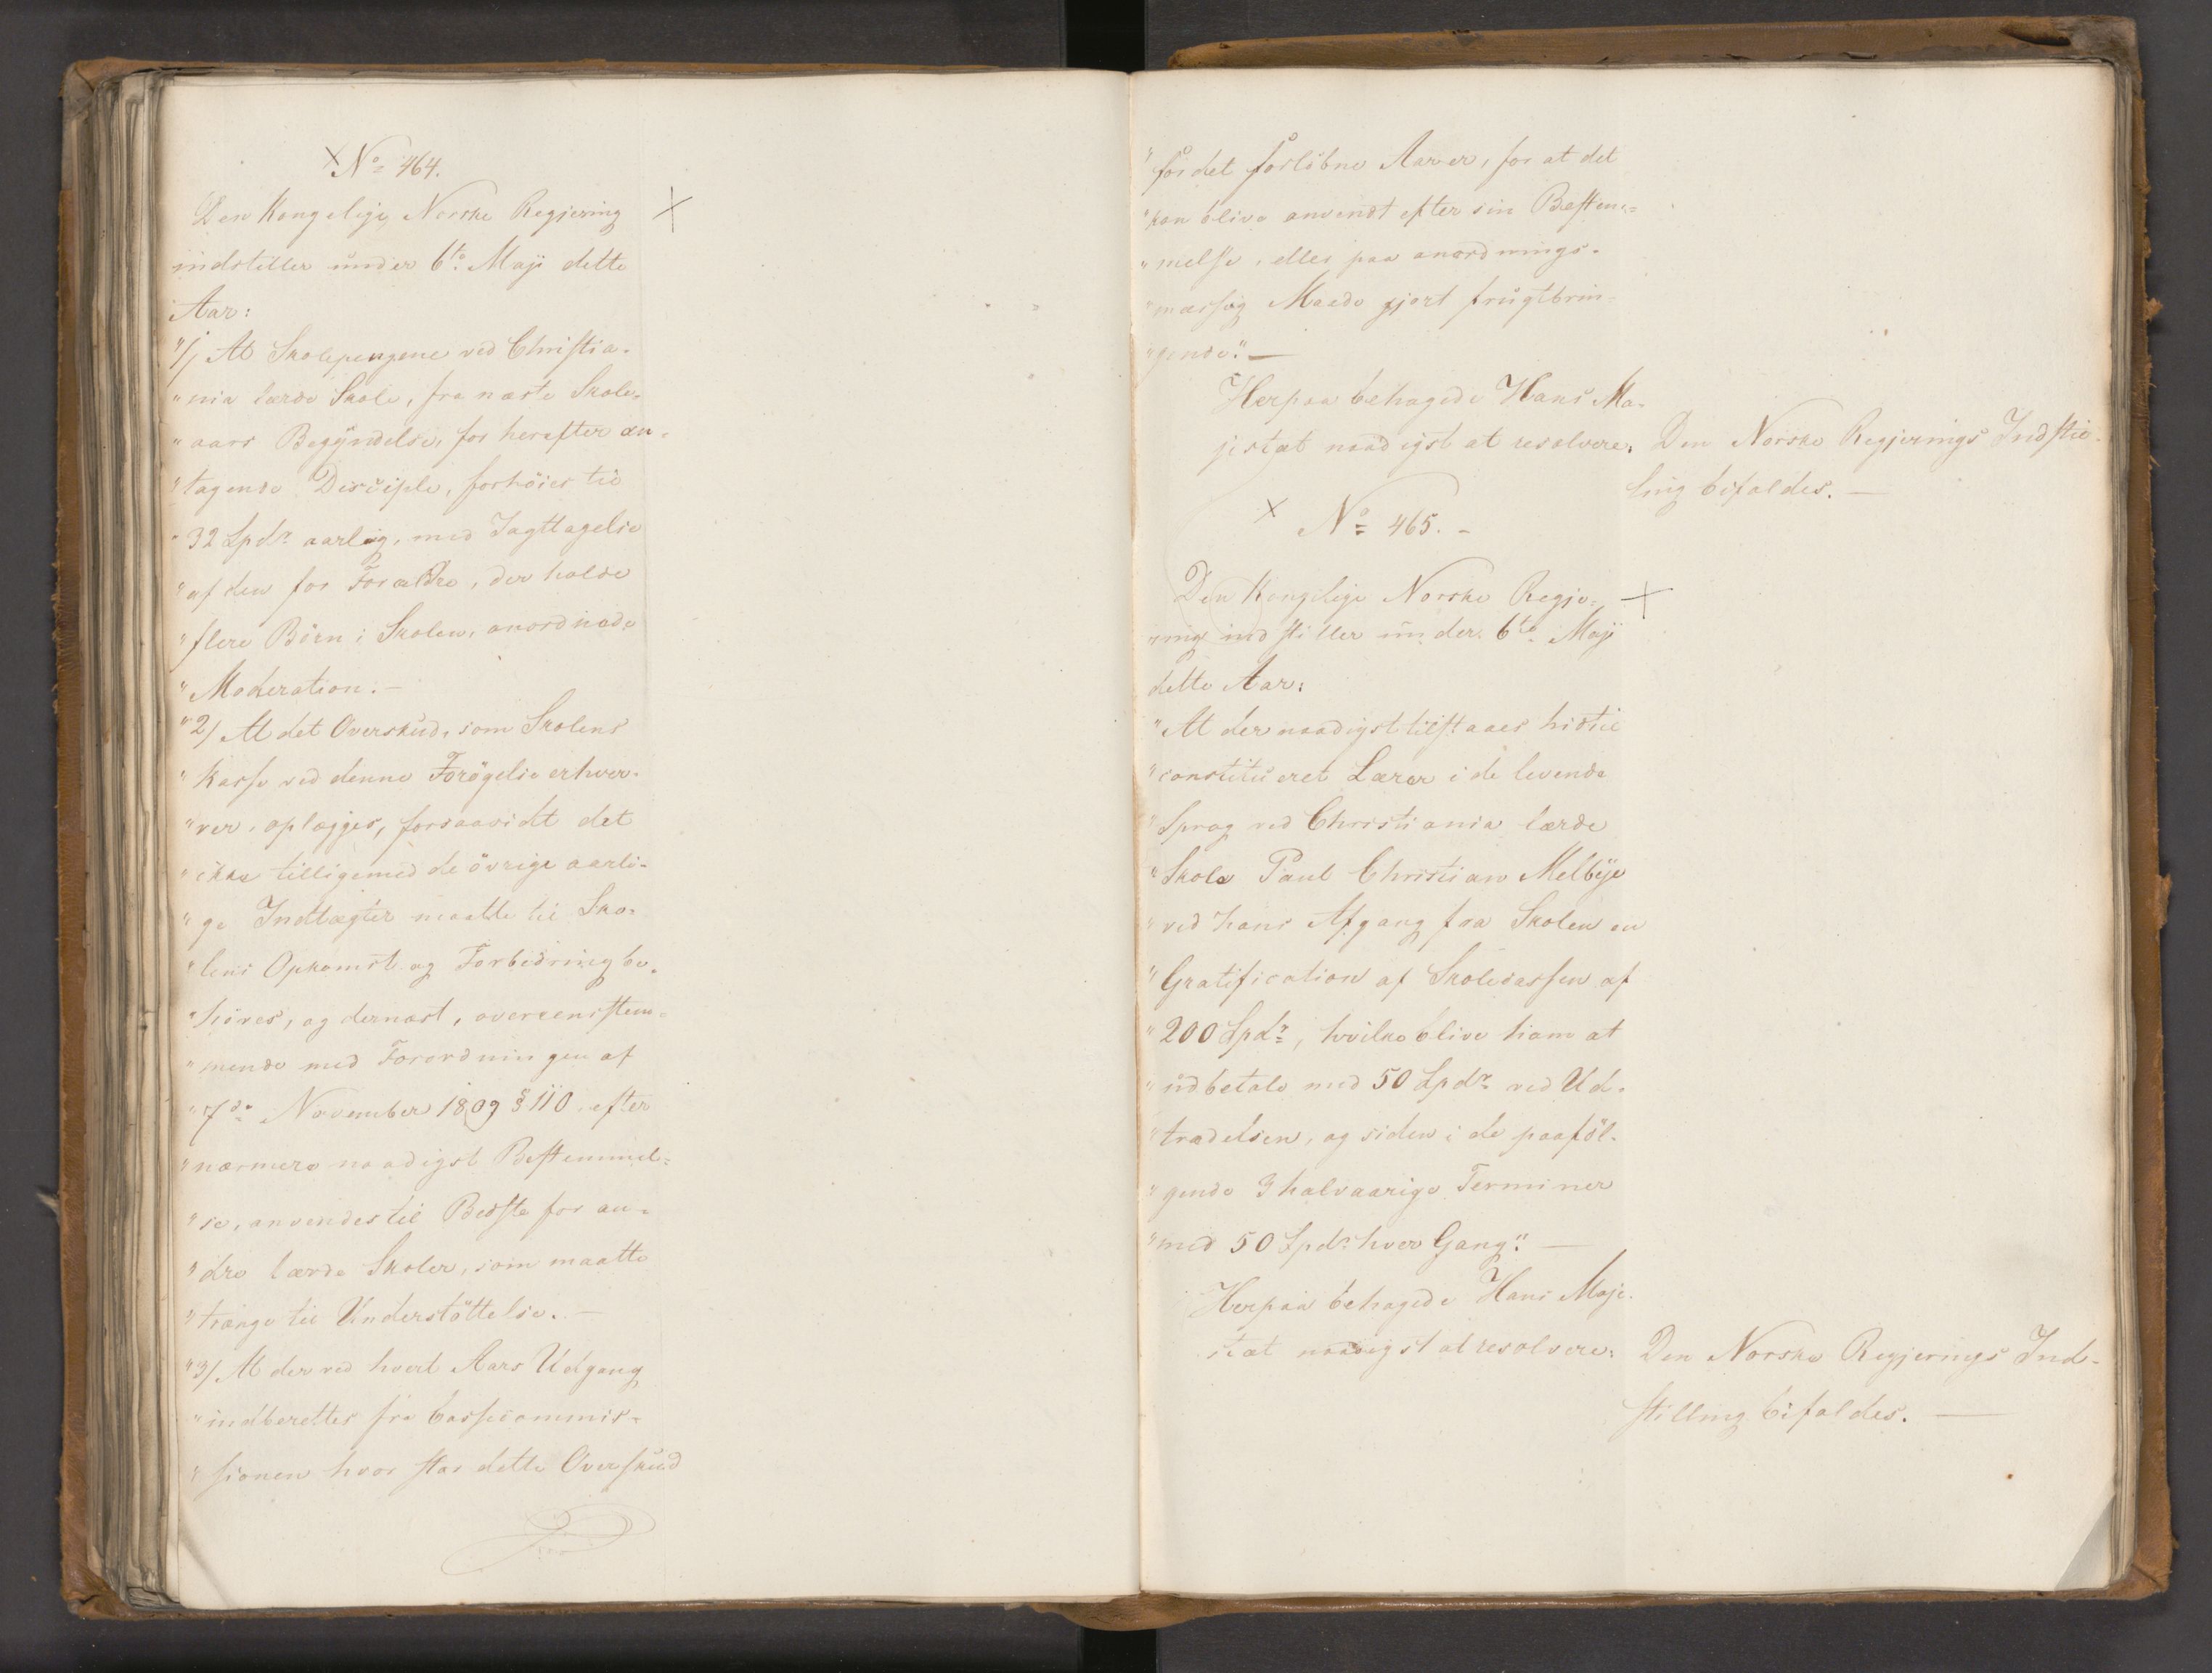 × No 464.
Den Kongelige Norske Regjering ×
indstiller under 6te Maji dette
Aar:
"1/ At Skolepengene ved Christia-
"nia lærde Skole, fra næste Skole-
"aars Begyndelse, for herefter an-
"tagende Disciple, forhöies til
"32 Spdr aarlig, med Iagttagelse
"af den for Forældre, der holde
"flere Börn i Skolen, anordnede
"Moderation.—
"2/ At det Overskud, som Skolens
"Kasse ved denne Forögelse erhver-
"ver, oplægges, forsaavidt det
"ikke tilligemed de övrige aarli-
"ge Indtægter maatte til Sko-
"lens Opkomst og Forbedring be-
"höves, og dernæst, overeenstem-
"mende med Forordningen af
"7de November 1809 § 110, efter
"nærmere naadigst Bestemmel-
"se, anvendes til Bedste for an-
"dre lærde Skoler, som maatte
"trænge til Understöttelse.—
"3/ At der ved hvert Aars Udgang
"indberettes fra Cassecommis-
"sionen hvor stor dette Overskud
"for det forlöbne Aar er, for at det
"kan blive anvendt efter sin Bestem-
"melse, eller paa anordnings-
"mæssig Maade gjort frugtbrin-
"gende."—
Herpaa behagede Hans Ma-
jestæt naadigst at resolvere: Den Norske Regjerings Indstil-
ling bifaldes.—
× No 465.-
Den Kongelige Norske Regje- ×
ring indstiller under 6te Maji
dette Aar:
"At der naadigst tilstaaes hidtil
"constitueret Lærer i de levende
"Sprog ved Christiania lærde
"Skole Paul Christian Melbye
"ved hans Afgang fra Skolen en
"Gratification af Skolecassen af
"200 Spdr, hvilke blive ham at
"udbetale med 50 Spdr ved Ud-
"trædelsen, og siden i de paaföl-
"gende 3 halvaarige Terminer
"med 50 Spdr hver Gang".—
Herpaa behagede Hans Maje-
stæt naadigst at resolvere: Den Norske Regjerings Ind-
stilling bifaldes.—